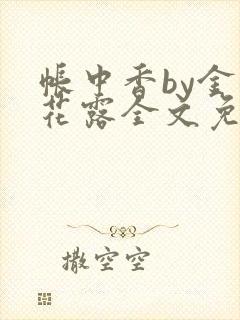 帐中香by金
花露全文免
撒空空